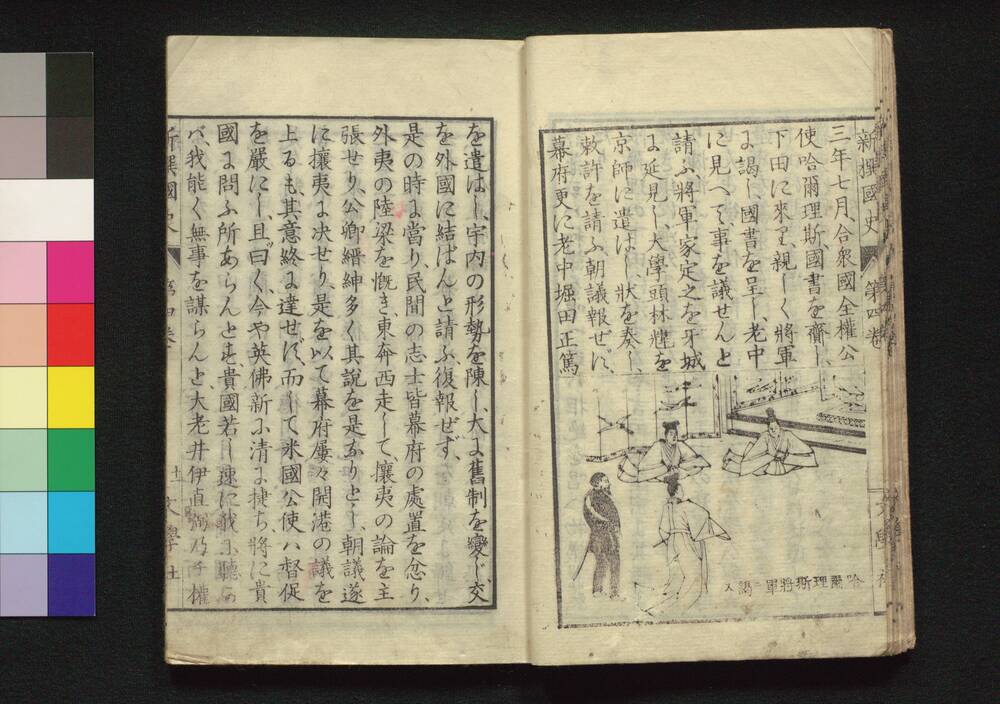 新撰國史 第四卷
三年七月、合衆國全權公
使哈爾理斯、國書を齎し、
下田に來り、親しく將軍
に謁し、國書を呈し、老中
に見へて、事を議せんと
請ふ、將軍家定之を牙城
に延見し、大學頭林煒を
京師に遣はし、狀を奏し、
敕許を請ふ、朝議報ぜず、
幕府更に老中堀田正篤
哈爾理斯將軍ニ謁ス
文學社
を遣はし、宇内の形勢を陳し、大に舊制を變じ、交
を外國に結ばんと請ふ、復報ぜず、
是の時に當り、民間の志士皆幕府の處置を忿り、
外夷の陸梁を慨き、東奔西走して、攘夷の論を主
張せり、公卿縉紳多く其說を是なりとし、朝議遂
に攘夷に決せり、是を以て幕府屢々開港の議を
上るも、其意終に達せず、而して米國公使ハ督促
を嚴にし、且曰く、今や英佛新に清に捷ち、將に貴
國に問ふ所あらんとす、貴國若し速に我に聽か
バ、我能く無事を謀らんと大老井伊直弼乃チ權
新撰國史 第四卷
十一 文學社